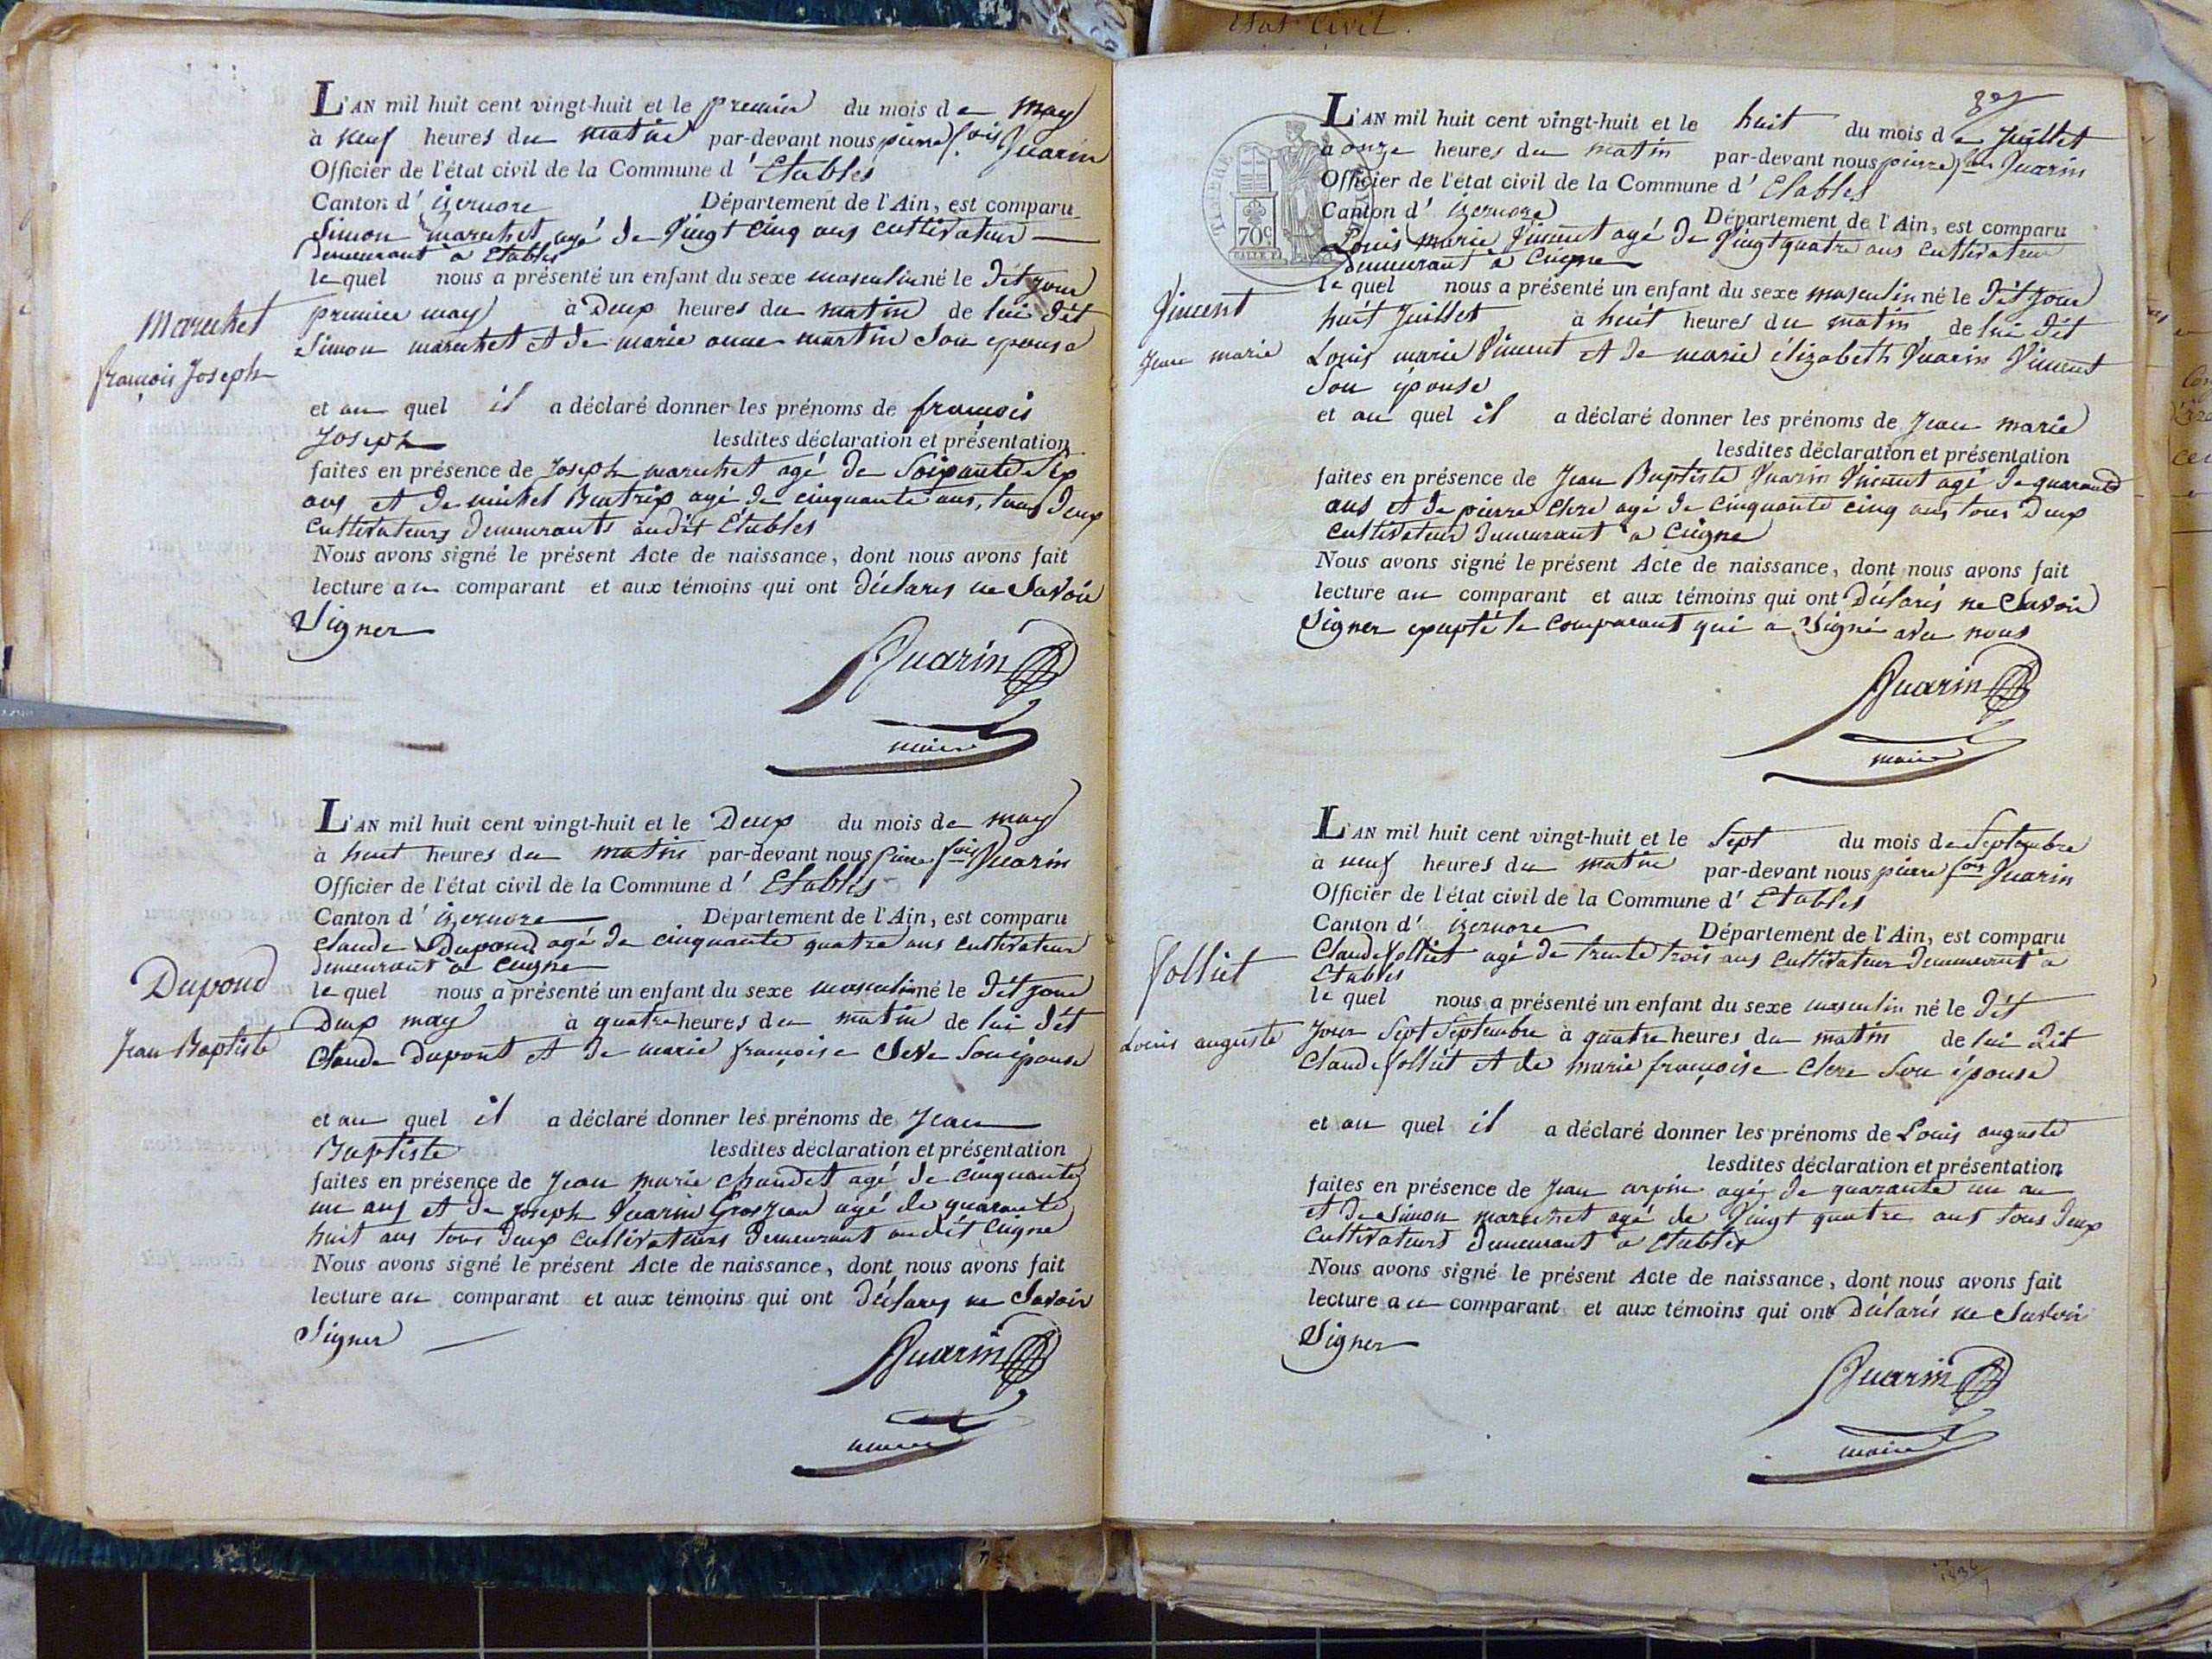 Etat Civil.
L'AN mil huit cent vingt-huit et le premier du mois de may
à neuf heures du matin par-devant nous pierre fois Quarin
Officier de l'état civil de la Commune d' Etables
Canton d' izernore Département de l'Ain, est comparu
Simon maruchet agé de Vingt cinq ans cultivateur
demeurant a Etables
le quel nous a présenté un enfant du sexe masculin né le dit jour
premier may à Deux heures du matin de lui dit
Simon maruchet et de marie anne martin Son epouse
et au quel il a déclaré donner les prénoms de françois
Joseph lesdites déclaration et présentation
faites en présence de Joseph maruchet agé de Soixante Six
ans et de michel Beatrix agé de cinquante ans, tous deux
cultivateurs demeurants audit Etables
Nous avons signé le présent Acte de naissance, dont nous avons fait
lecture au comparant et aux témoins qui ont déclarés ne Savoir
Signer
Quarin
maire
Maruchet
françois Joseph
L'AN mil huit cent vingt-huit et le Deux du mois de may
à huit heures du matin par-devant nous pierre fois Quarin
Officier de l'état civil de la Commune d' Etables
Canton d' izernore Département de l'Ain, est comparu
Claude Dupond agé de cinquante quatre ans cultivateur
demeurant a Ceigne
le quel nous a présenté un enfant du sexe masculin né le dit jour
Deux may à quatre heures du matin de lui dit
Claude Dupont et de marie françoise Son épouse
et au quel il a déclaré donner les prénoms de Jean
Baptiste lesdites déclaration et présentation
faites en présence de Jean marie chaudet agé de cinquante
un ans et de joseph Quarin Grosjean agé de quarante
huit ans tous deux cultivateurs demeurant audit Ceigne
Nous avons signé le présent Acte de naissance, dont nous avons fait
lecture au comparant et aux témoins qui ont déclarés ne Savoir
Signer
Quarin
maire
Dupond
Jean Baptiste
L'AN mil huit cent vingt-huit et le huit du mois de Juillet
à onze heures du matin par-devant nous pierre fois Quarin
Officier de l'état civil de la Commune d' Etables
Canton d' izernore Département de l'Ain, est comparu
Louis marie Vincent agé de Vingt quatre ans cultivateur
demeurant a Ceigne
le quel nous a présenté un enfant du sexe masculin né le dit jour
huit Juillet à huit heures du matin de lui dit
Louis marie Vincent et de marie élizabeth Quarin Vincent
Son épouse
et au quel il a déclaré donner les prénoms de Jean marie
lesdites déclaration et présentation
faites en présence de Jean Baptiste Quarin Vincent agé de quarante
ans et de pierre Clere agé de cinquante cinq ans tous deux
cultivateurs demeurant a Ceigne
Nous avons signé le présent Acte de naissance, dont nous avons fait
lecture au comparant et aux témoins qui ont Déclarés ne Savoir
Signer excepté le comparant qui a Signé avec nous
Quarin
maire
Vincent
Jean marie
TIMBRE ROYAL
70c
L'AN mil huit cent vingt-huit et le Sept du mois de Septembre
à neuf heures du matin par-devant nous pierre fois Quarin
Officier de l'état civil de la Commune d' Etables
Canton d' izernore Département de l'Ain, est comparu
Claude folliet agé de trente trois ans cultivateur demeurant a
Etables
le quel nous a présenté un enfant du sexe masculin né le dit
jour Sept Septembre à quatre heures du matin de lui dit
Claude folliet et de marie françoise Clere Son épouse
et au quel il a déclaré donner les prénoms de Louis auguste
lesdites déclaration et présentation
faites en présence de Jean arpin agé de quarante un an
et de Simon maruchet agé de Vingt quatre ans tous deux
cultivateurs demeurant a Etables
Nous avons signé le présent Acte de naissance, dont nous avons fait
lecture au comparant et aux témoins qui ont Déclarés ne Savoir
Signer
Quarin
maire
folliet
Louis auguste